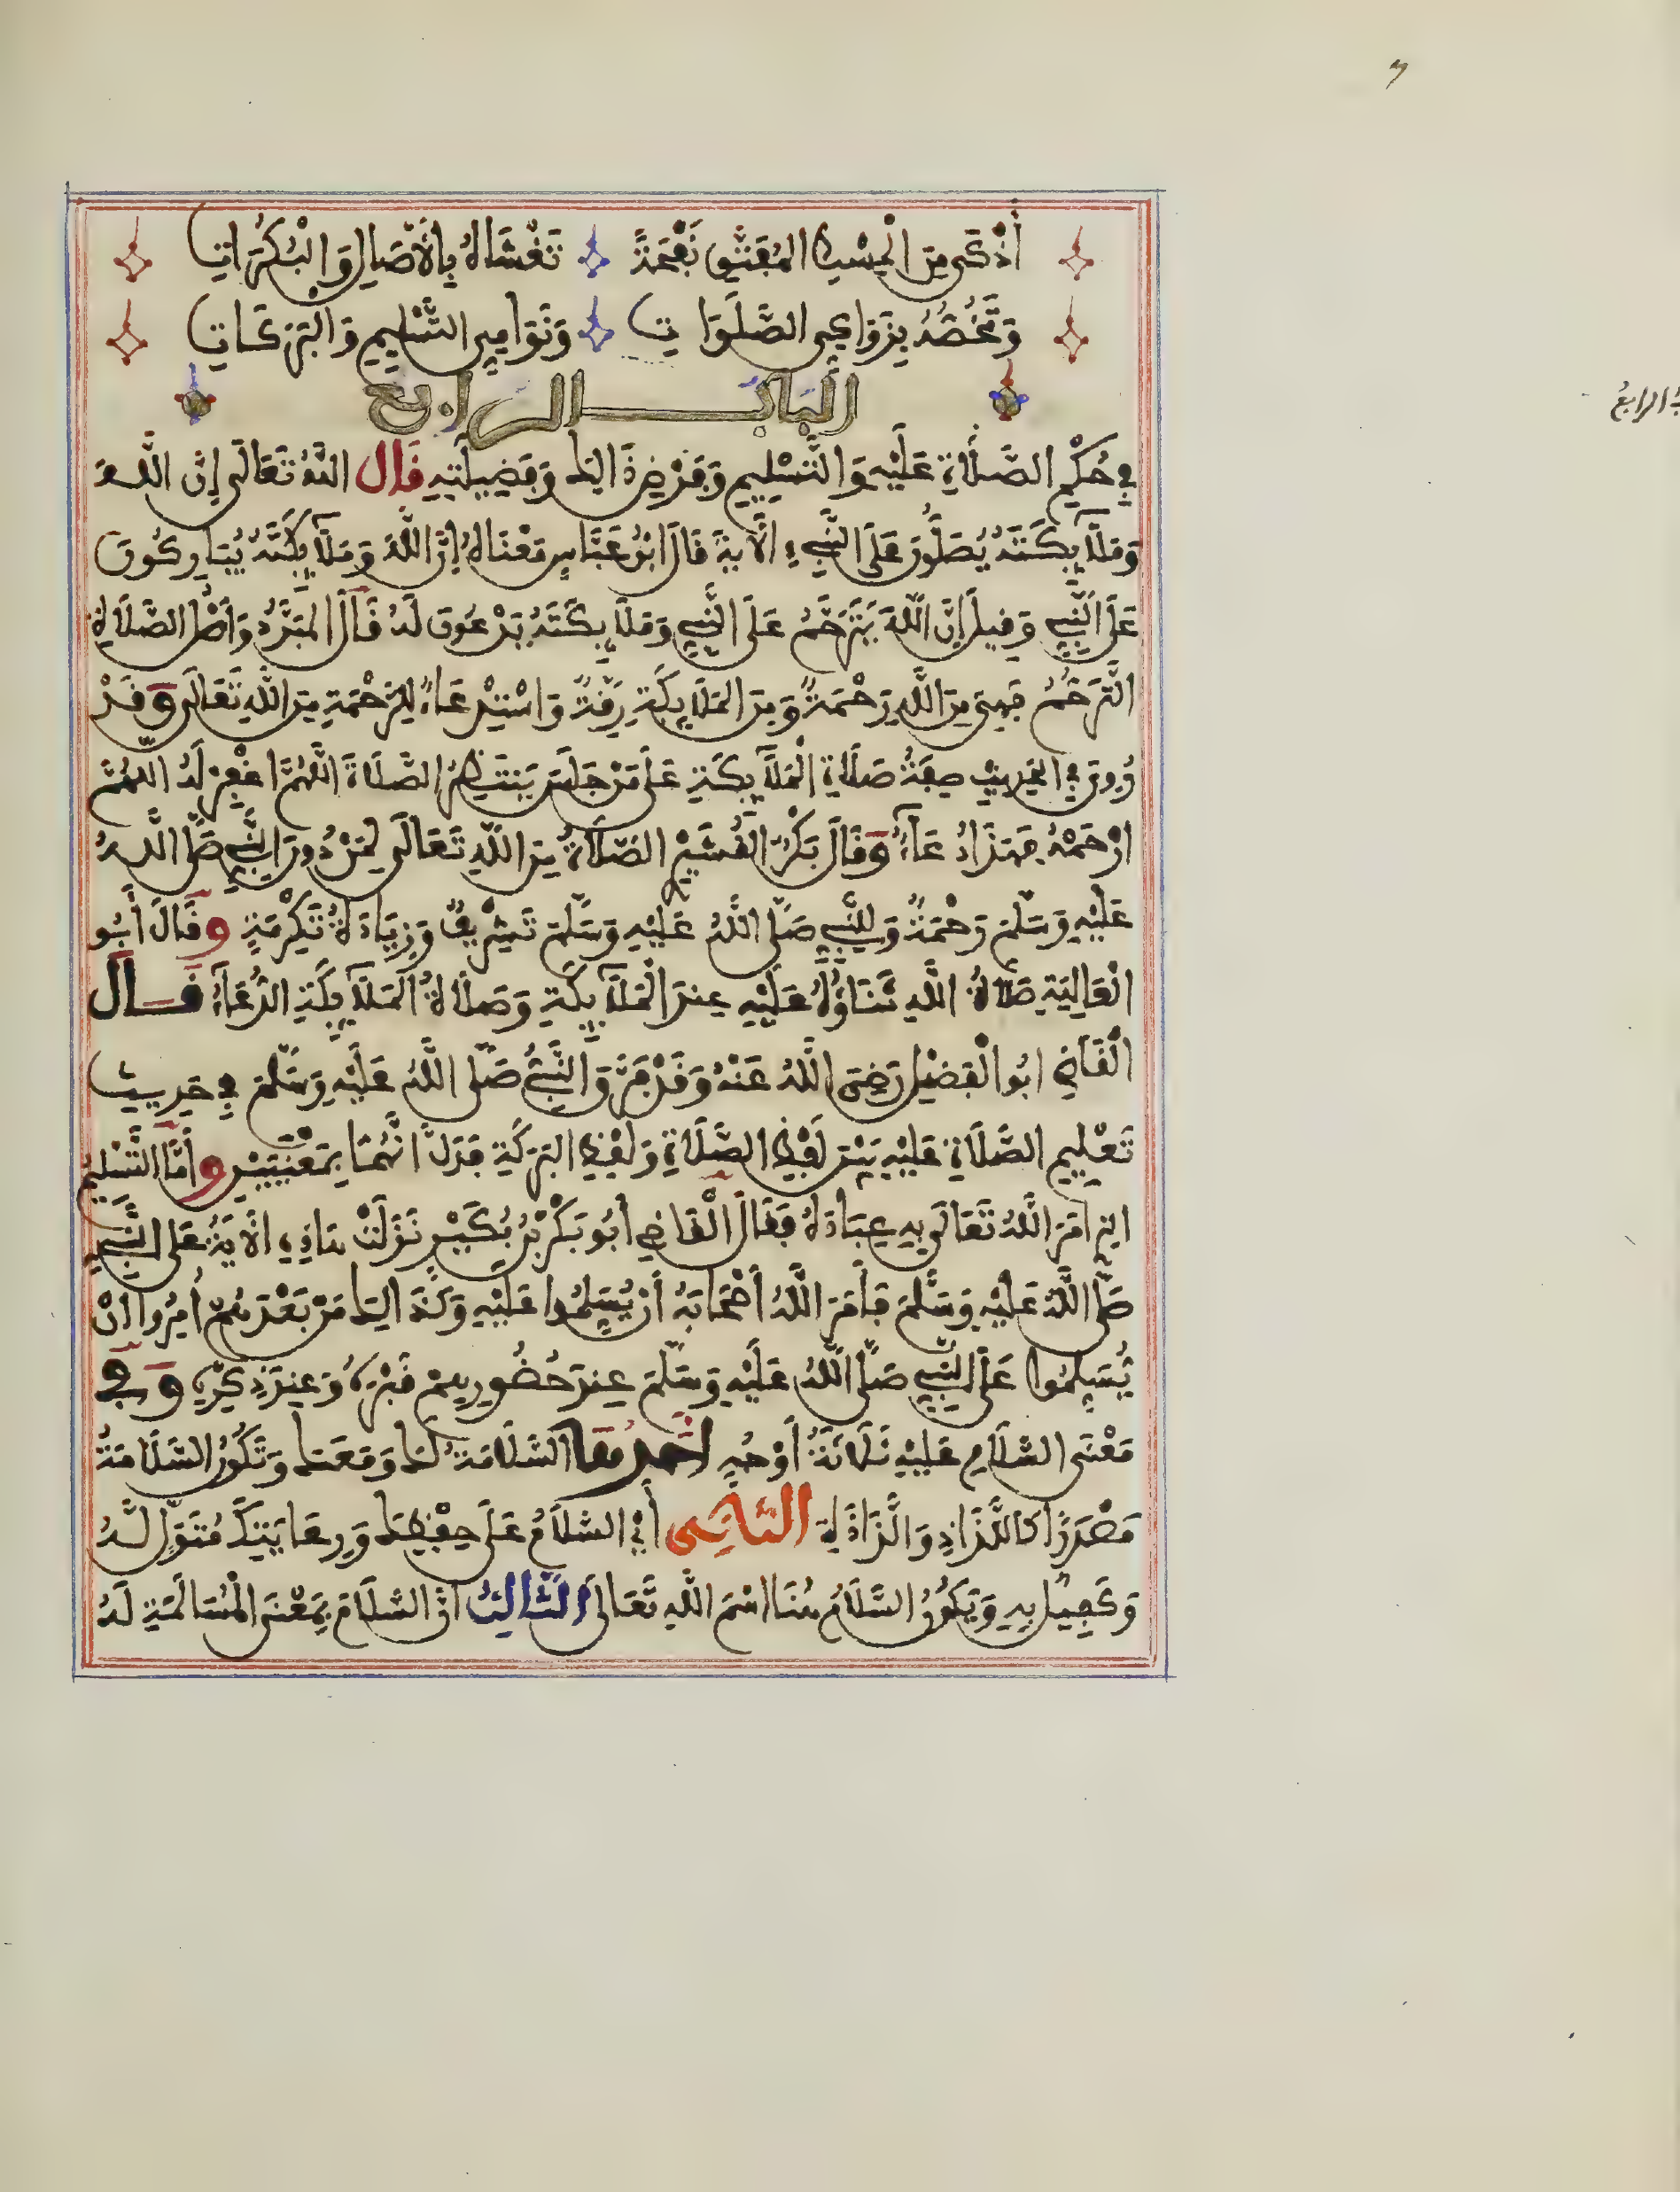 أَذْكَى مِنَ الْمِسْكِ الْمُفَتَّقِ نَفْحَةً تَغْشَاهُ بِالْآصَالِ وَالْبُكُرَاتِ
وَتَخُصُّهُ بِزَوَاكِي الصَّلَوَاتِ وَنَوَامِي التَّسْلِيمِ وَالْبَرَكَاتِ
الباب الرابع
في حُكْمِ الصَّلَاةِ عَلَيْهِ وَالتَّسْلِيمِ وَفَرْضِ ذَالِكَ وَفَضِيلَتِهِ قال اللَّهُ تَعَالَى إِنَّ اللَّهَ
وَمَلَآئِكَتَهُ يُصَلُّونَ عَلَى النَّبِيءِ الْآيَةَ قَالَ ابْنُ عَبَّاسٍ مَعْنَاهُ إِنَّ اللَّهَ وَمَلَآئِكَتَهُ يُبَارِكُونَ
عَلَى النَّبِيِّ وَقِيلَ إِنَّ اللَّهَ يَتَرَحَّمُ عَلَى النَّبِيِّ وَمَلَآئِكَتَهُ يَدْعُونَ لَهُ قَالَ الْمُبَرَّدُ وَأَصْلُ الصَّلَاةِ
التَّرَحُّمُ فَهِيَ مِنَ اللَّهِ رَحْمَةٌ وَمِنَ الْمَلَائِكَةِ رِقَّةٌ وَاسْتِدْعَاءٌ لِلرَّحْمَةِ مِنَ اللَّهِ تَعَالَى وَقَدْ
وَرَدَ في الْحَدِيثِ صِفَةُ صَلَاةِ الْمَلَآئِكَةِ عَلَى مَنْ جَلَسَ يَنتَظِرُ الصَّلَاةَ اللَّهُمَّ اغْفِرْ لَهُ اللَّهُمَّ
ارْحَمْهُ فَهَذَا دُعَاءٌ وَقَالَ بَكْرٌ الْقُشَيْرِيُّ الصَّلَاةُ مِنَ اللَّهِ تَعَالَى لِمَنْ دُونَ النَّبِيِّ صَلَّى اللَّهُ
عَلَيْهِ وَسَلَّمَ رَحْمَةٌ وَلِلنَّبِيِّ صَلَّى اللَّهُ عَلَيْهِ وَسَلَّمَ تَشْرِيفٌ وَزِيَادَةُ تَكْرِمَةٍ وَقَالَ أَبُو
الْعَالِيَةِ صَلَاةُ اللَّهِ ثَنَاؤُهُ عَلَيْهِ عِندَ الْمَلَآئِكَةِ وَصَلَاةُ الْمَلَآئِكَةِ الدُّعَاءُ قال
الْقَاضِي ابُو الْفَضْلِ رَضِيَ اللَّهُ عَنْهُ وَقَدْ فَرَّقَ النَّبِيُّ صَلَّى اللَّهُ عَلَيْهِ وَسَلَّمَ في حَدِيثِ
تَعْلِيمِ الصَّلَاةِ عَلَيْهِ بَيْنَ لَفْظِ الصَّلَاةِ وَلَفْظِ الْبَرَكَةِ فَدَلَّ أَنَّهُمَا بِمَعْنَيَيْنِ وَأَمَّا التَّسْلِيمُ
الذِي أَمَرَ اللَّهُ تَعَالَى بِهِ عِبَادَهُ فَقَالَ الْقَاضِي أَبُو بَكْرِ بْنُ بُكَيْرٍ نَزَلَتْ هَاذِهِ الْآيَةُ عَلَى النَّبِيِّ
صَلَّى اللَّهُ عَلَيْهِ وَسَلَّمَ فَأَمَرَ اللَّهُ أَصْحَابَهُ أَنْ يُسَلِّمُوا عَلَيْهِ وَكَذَالِكَ مَنْ بَعْدَهُمْ أُمِرُوا أَنْ
يُسَلِّمُوا عَلَى النَّبِيِّ صَلَّى اللَّهُ عَلَيْهِ وَسَلَّمَ عِندَ حُضُورِهِمْ قَبْرَهُ وَعِندَ ذِكْرِهِ وَفي
مَعْنَى السَّلَامِ عَلَيْهِ ثَلَاثَةُ أَوْجُهٍ احدها السَّلَامَةُ لَكَ وَمَعَكَ وَتَكُونُ السَّلَامَةُ
مَصْدَرًا كَاللَّذَاذِ وَالَّذَاذَةِ الثاني أَيِ السَّلَامُ عَلَى حِفْظِكَ وَرِعَايَتِكَ مُتَوَلٍّ لَهُ
وَكَفِيلٌ بِهِ وَيَكُونُ السَّلَامُ هُنَا اسْمَ اللَّهِ تَعَالَى الثالث أَنَّ السَّلَامَ بِمَعْنَى الْمُسَالَمَةِ لَهُ
الرابع